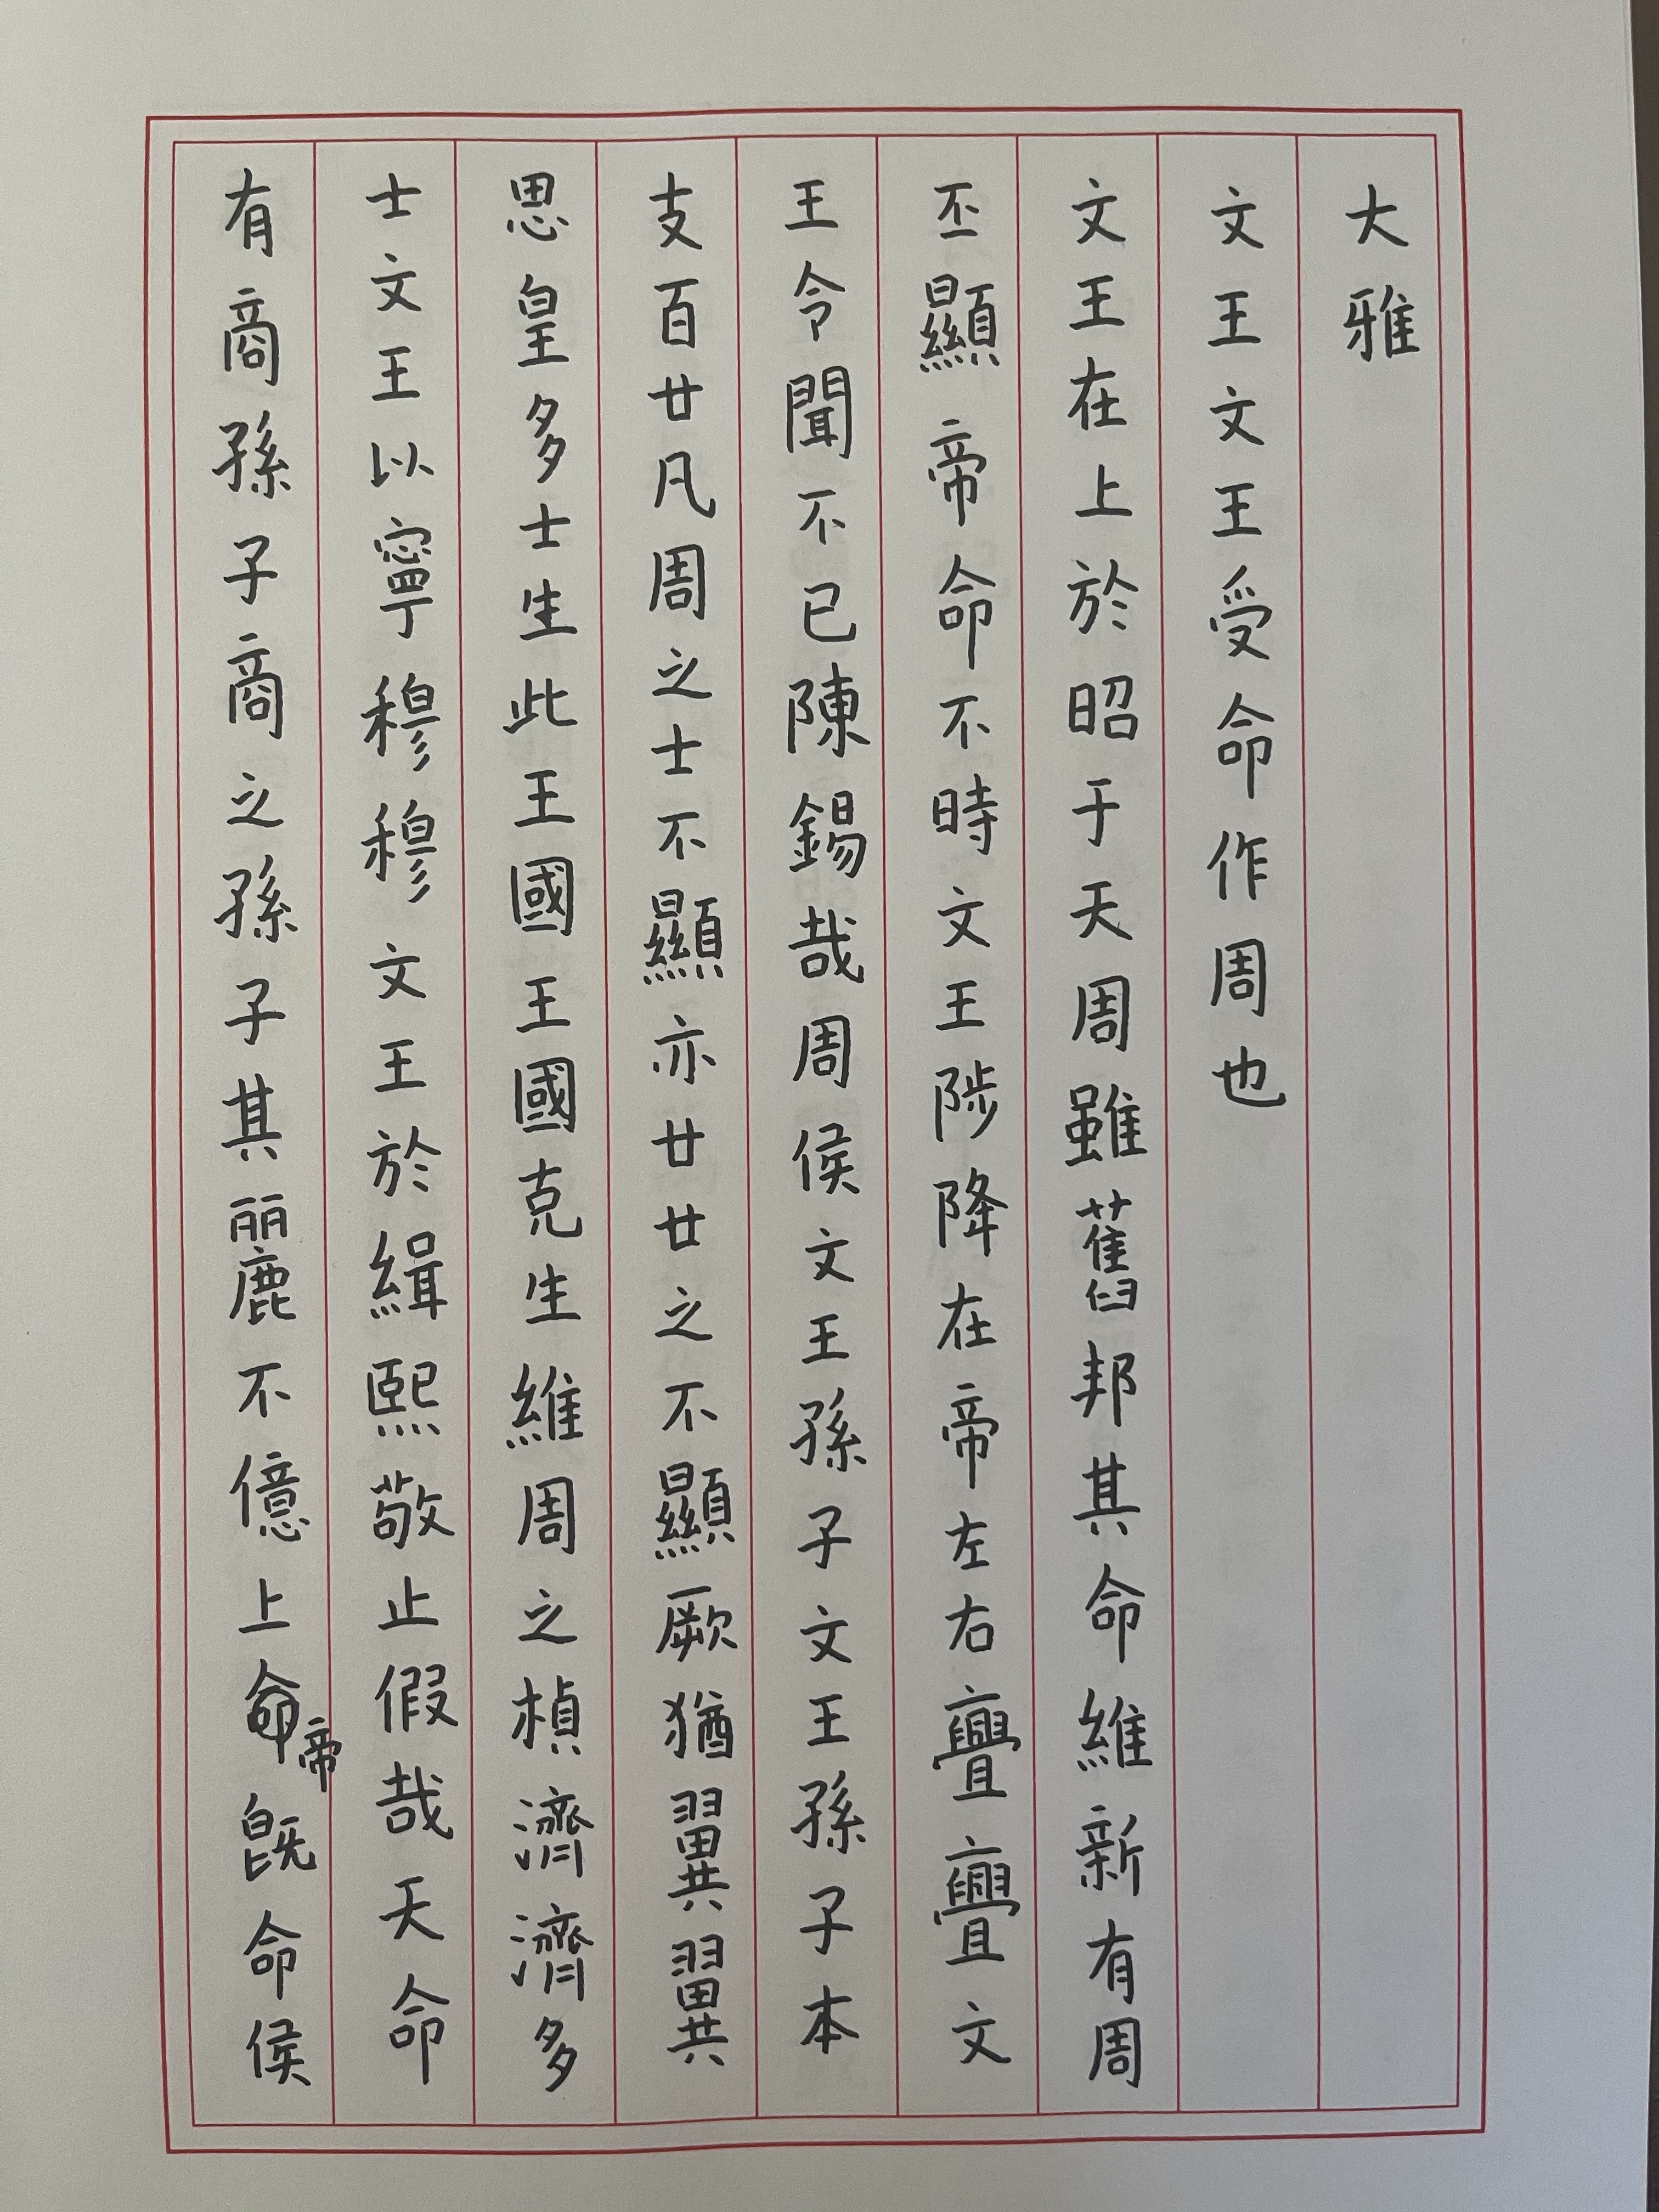 大雅
文王文王受命作周也
文王在上於昭于天周雖舊邦其命維新有周
丕顯帝命不時文王陟降在帝左右亹亹文
王令聞不已陳錫哉周侯文王孫子文王孫子本
支百廿凡周之士不顯亦廿廿之不顯厥猶翼翼
思皇多士生此王國王國克生維周之楨濟濟多
士文王以寧穆穆文王於緝熙敬止假哉天命
有商孫子商之孫子其麗不億上帝既命侯